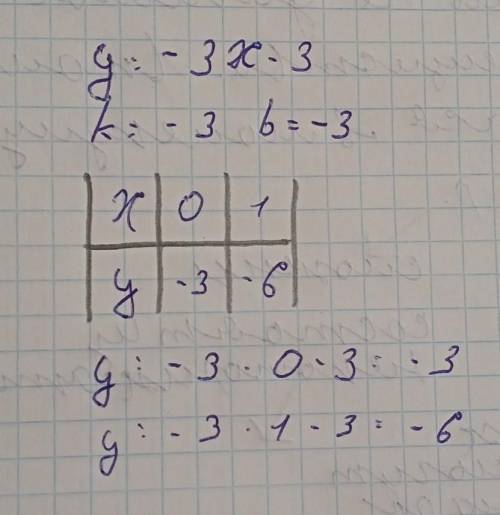 y = -3x - 3
k = -3 b = -3
x 0 1
y -3 -6
y = -3 · 0 - 3 = -3
y = -3 · 1 - 3 = -6